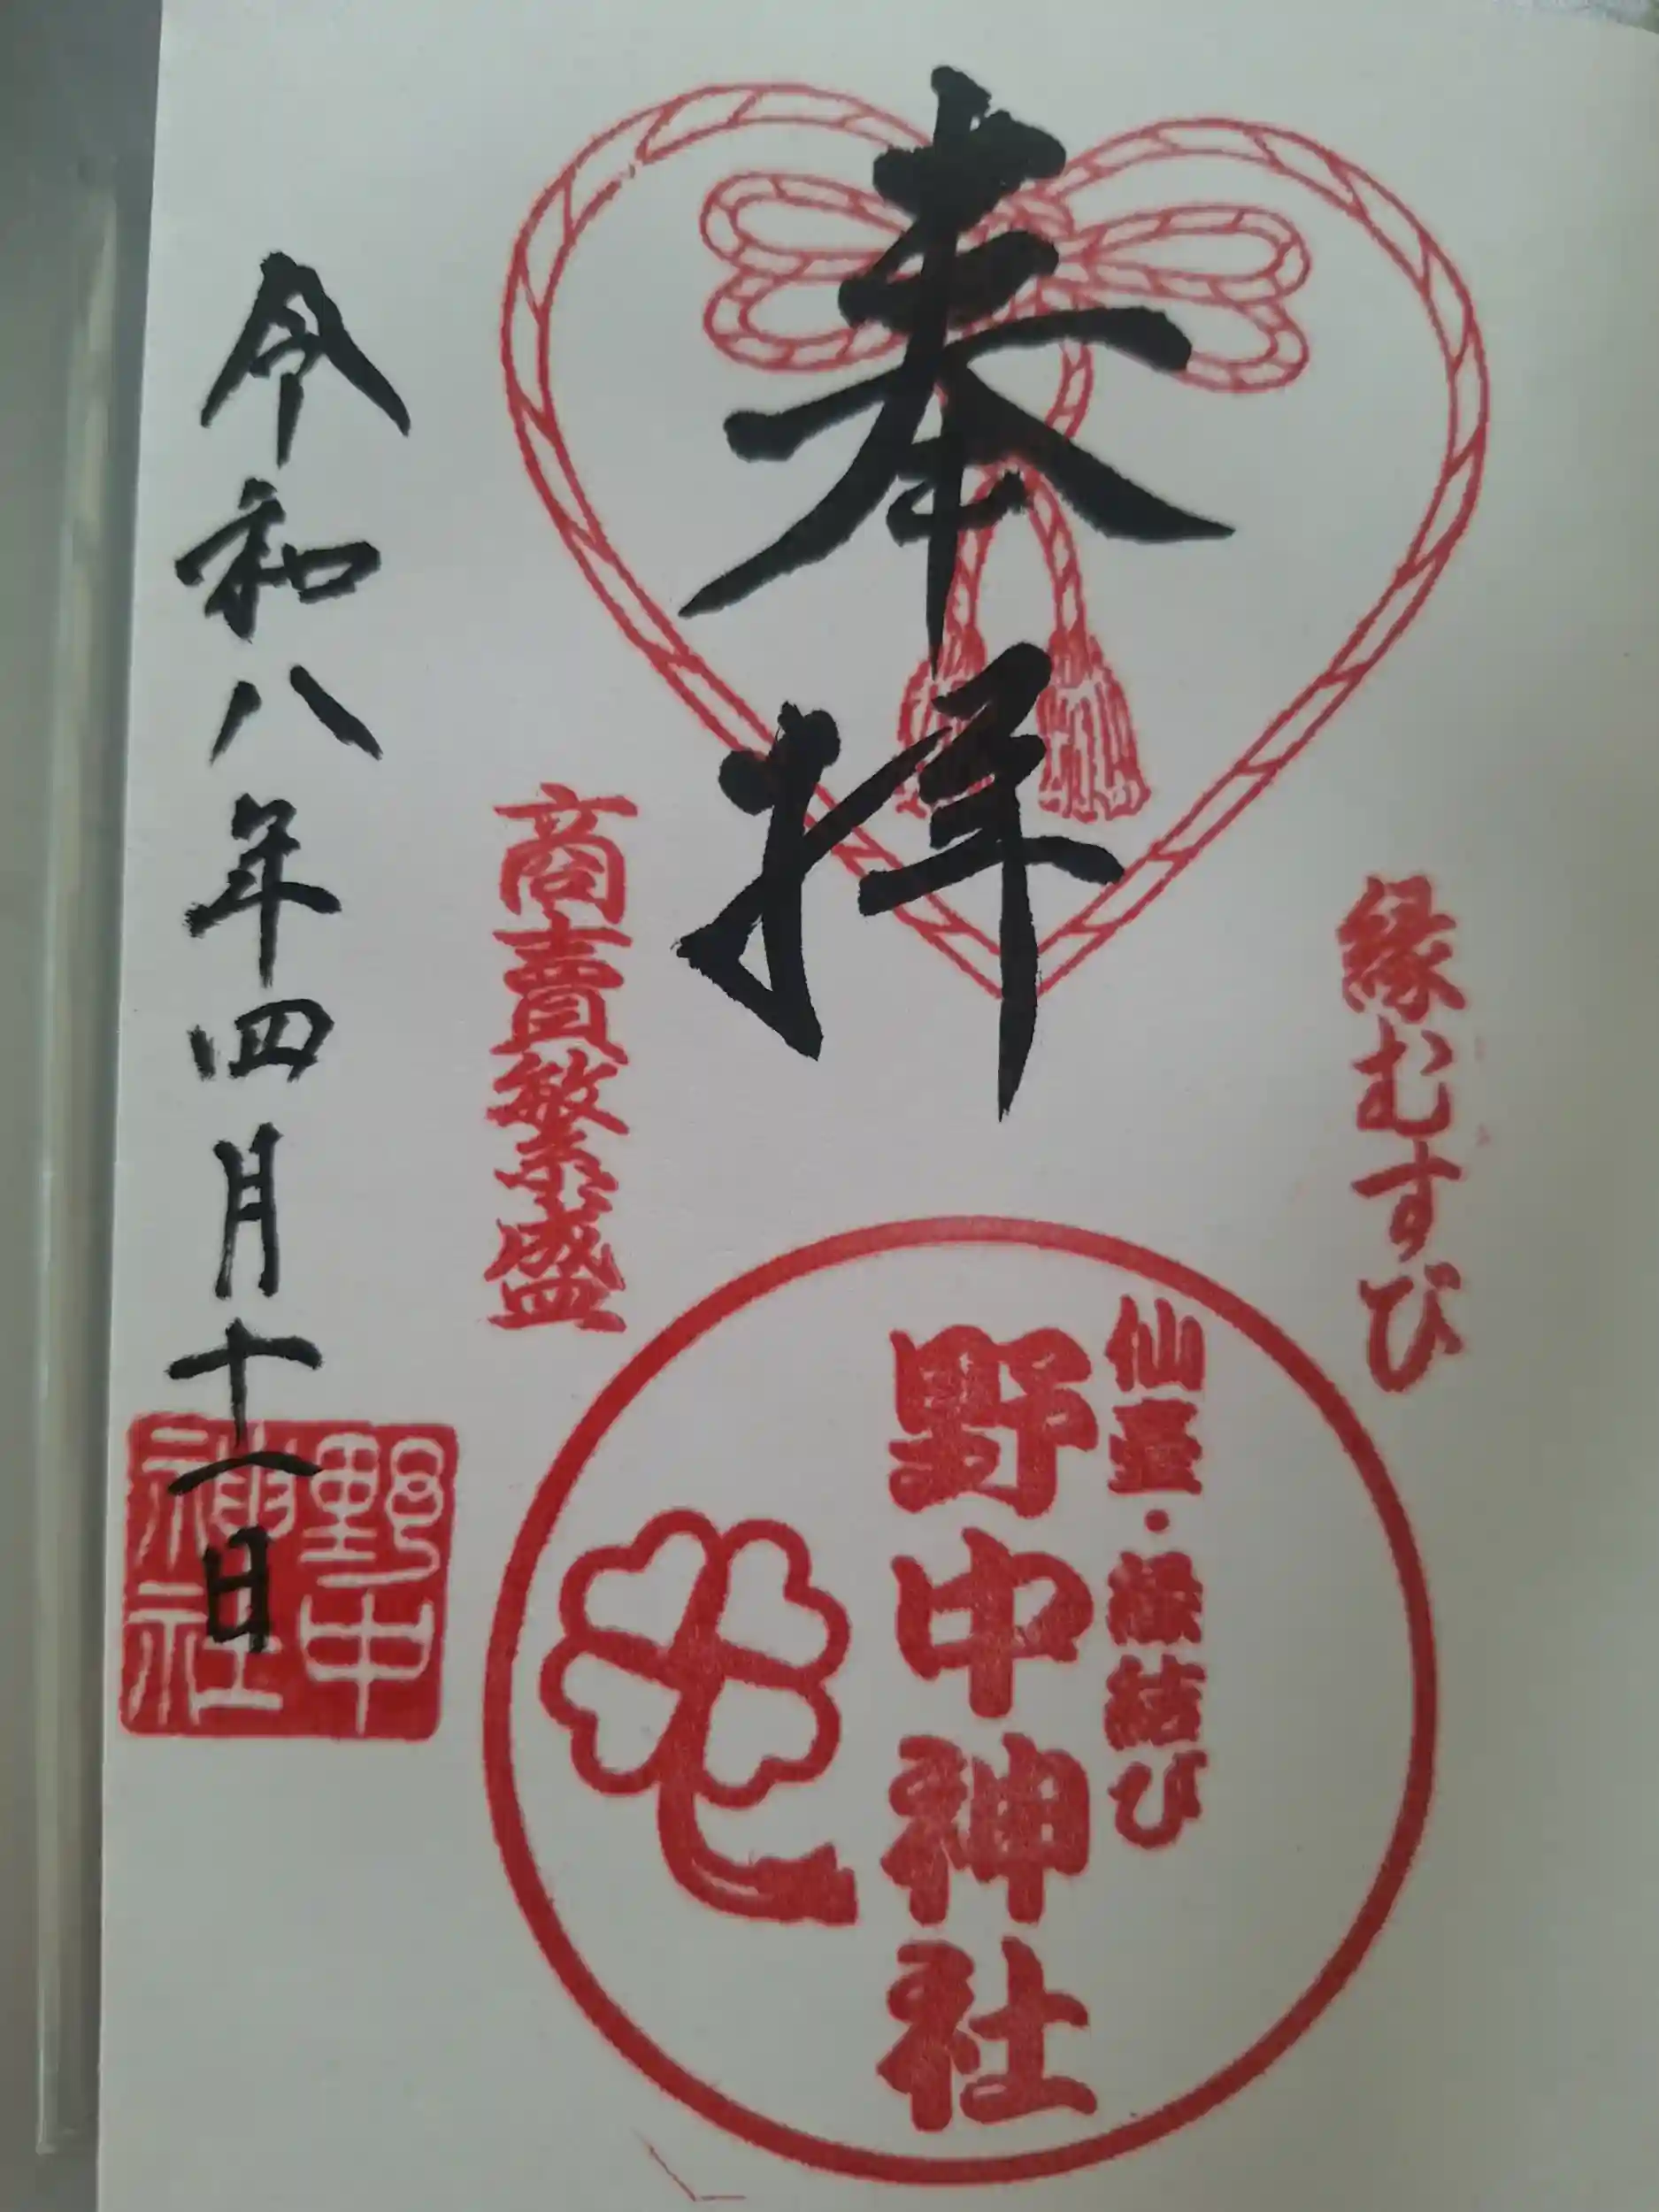 縁むすび
奉拝
仙臺・縁結び
野中神社
商賣繁盛
令和八年四月十一日
野中
神社